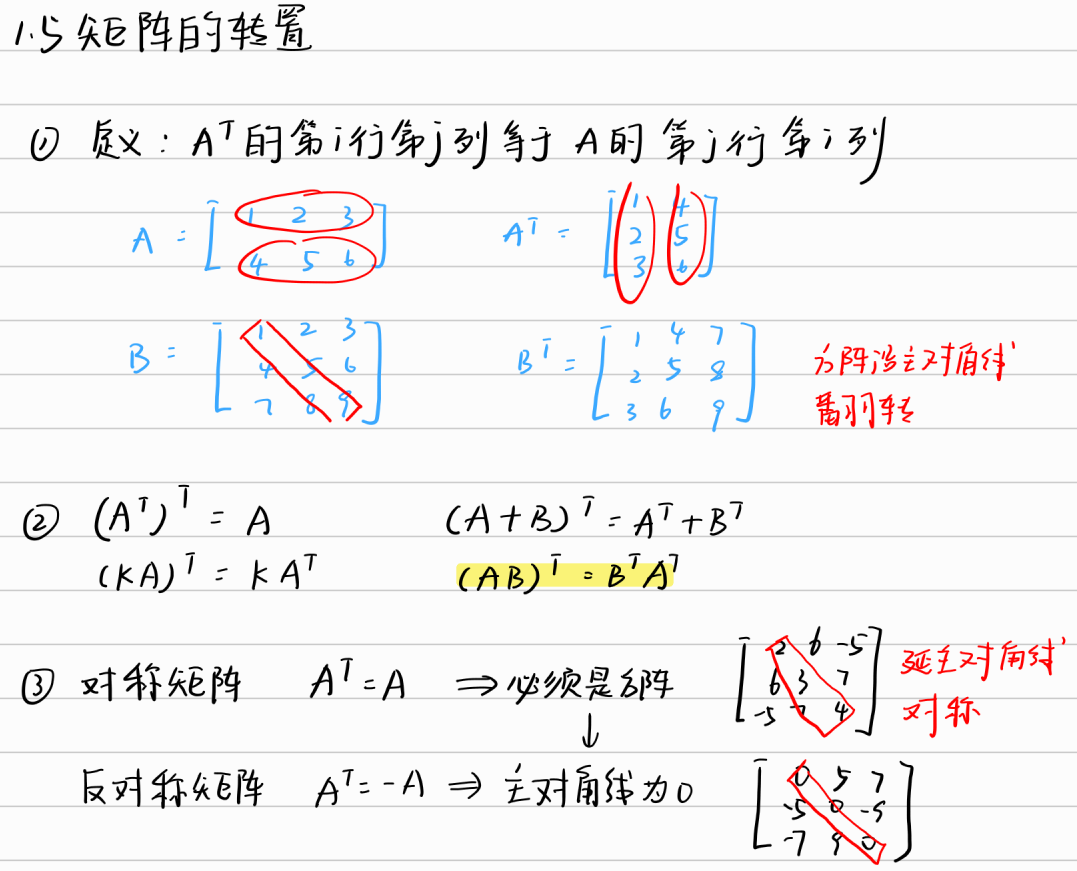 1.5 矩阵的转置
① 定义：Aᵀ的第i行第j列等于A的第j行第i列
A = [1 2 3
4 5 6]
Aᵀ = [1 4
2 5
3 6]
B = [1 2 3
4 5 6
7 8 9]
Bᵀ = [1 4 7
2 5 8
3 6 9]
方阵沿主对角线
翻转
② (Aᵀ)ᵀ = A (A+B)ᵀ = Aᵀ+Bᵀ
(KA)ᵀ = KAᵀ (AB)ᵀ = BᵀAᵀ
③ 对称矩阵 Aᵀ=A ⇒ 必须是方阵
[2 6 -5
6 3 7
-5 7 4]
延主对角线
对称
↓
反对称矩阵 Aᵀ=-A ⇒ 主对角线为0
[0 5 7
-5 0 -9
-7 9 0]